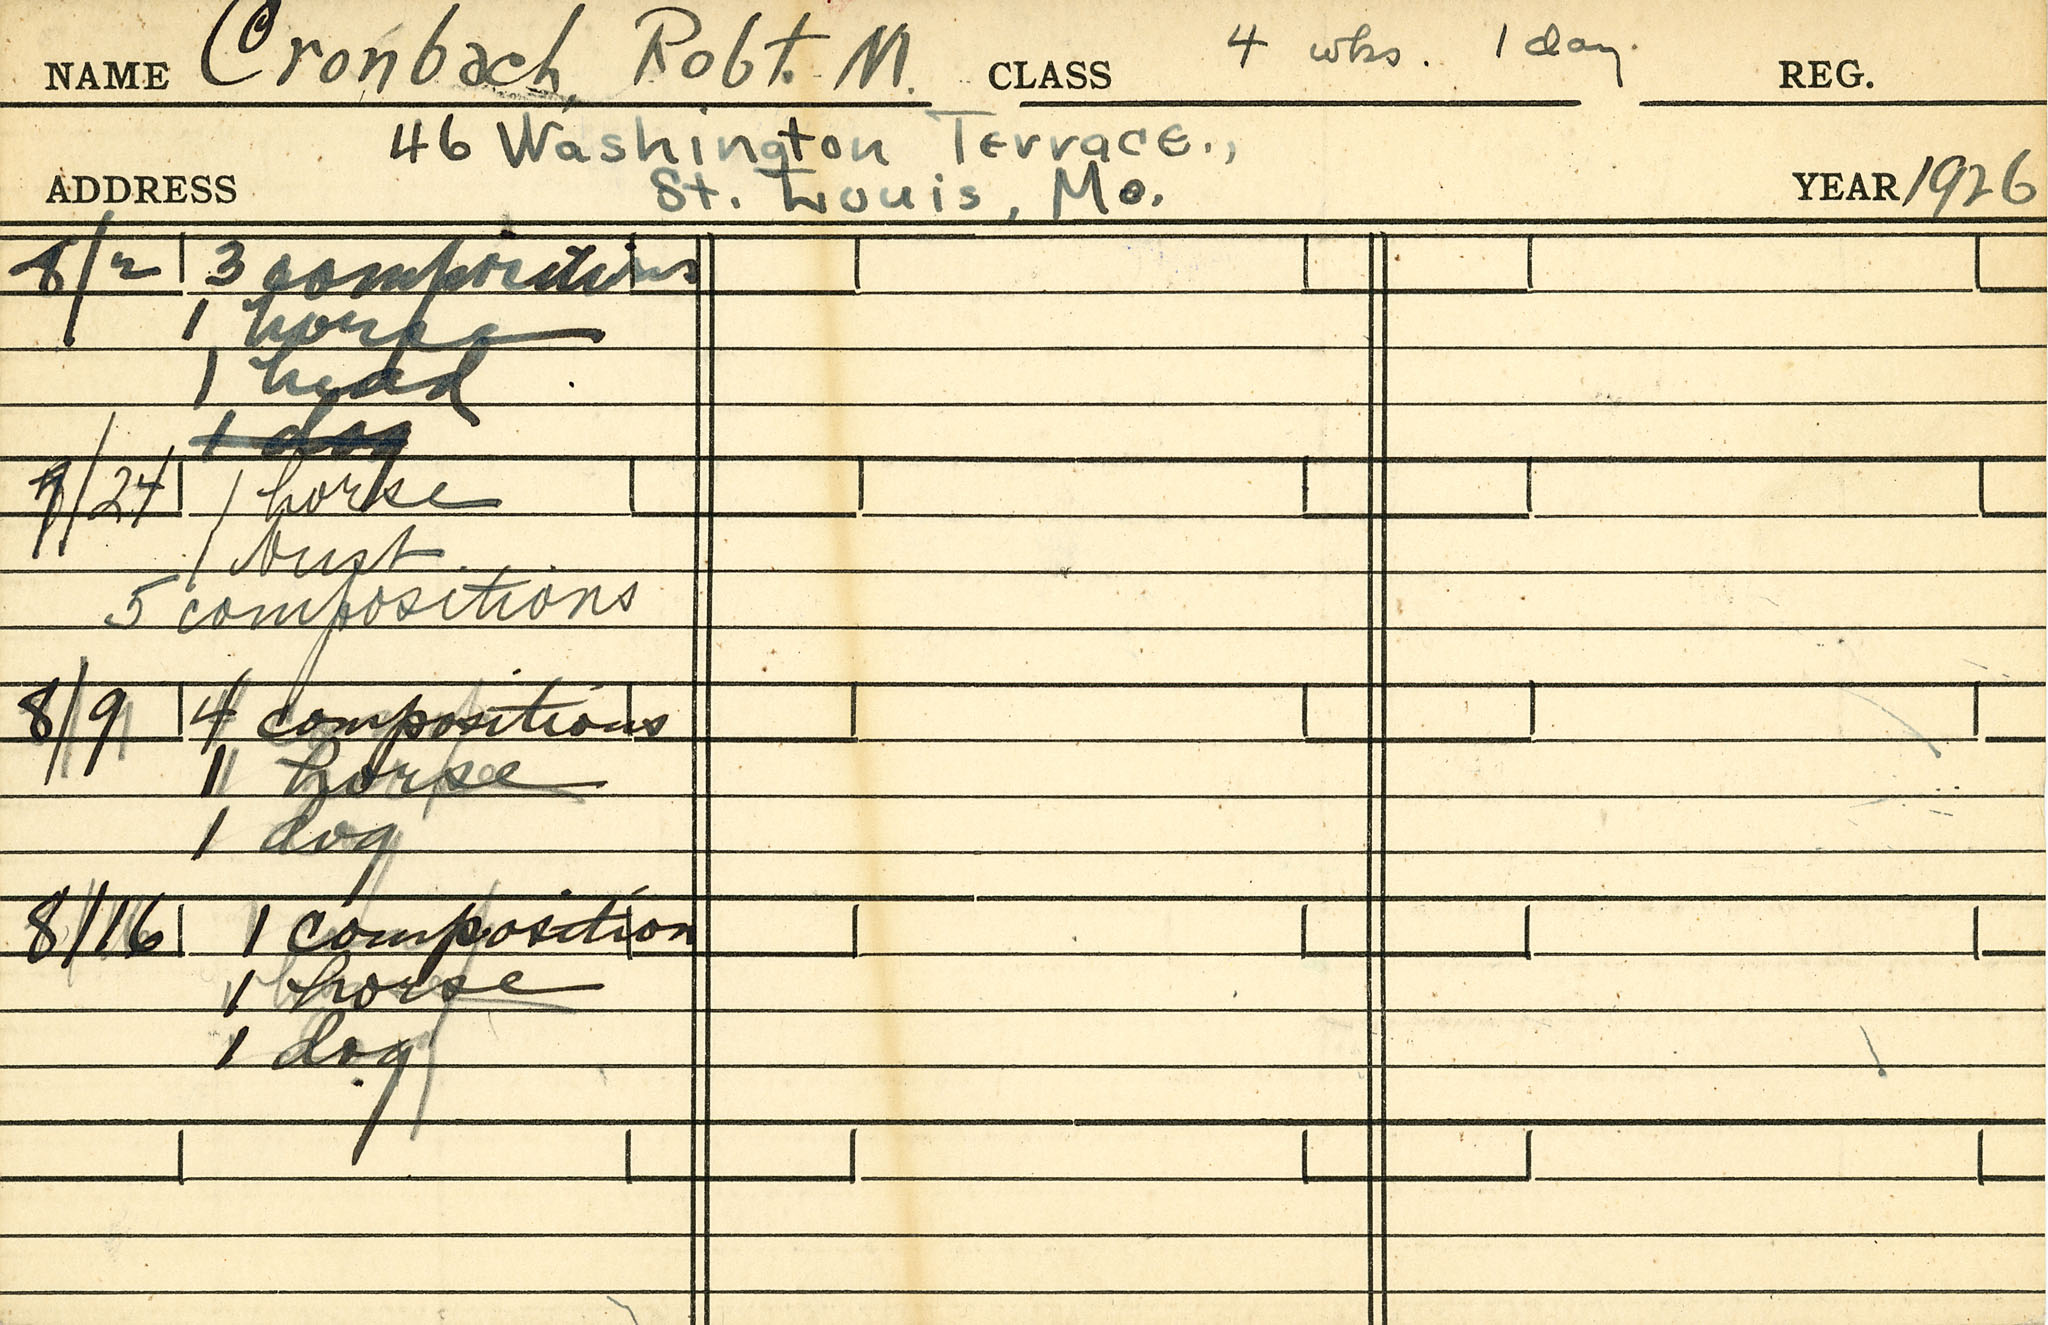 NAME Cronbach, Robt. M. CLASS 4 wks. 1 day. REG.
46 Washington Terrace.,
ADDRESS St. Louis, Mo. YEAR 1926
8/2 3 compositions
1 horse
1 head
1 dog
/24 1 horse
1 bust
5 compositions
8/9 4 compositions
1 horse
1 dog
8/16 1 composition
1 horse
1 dog